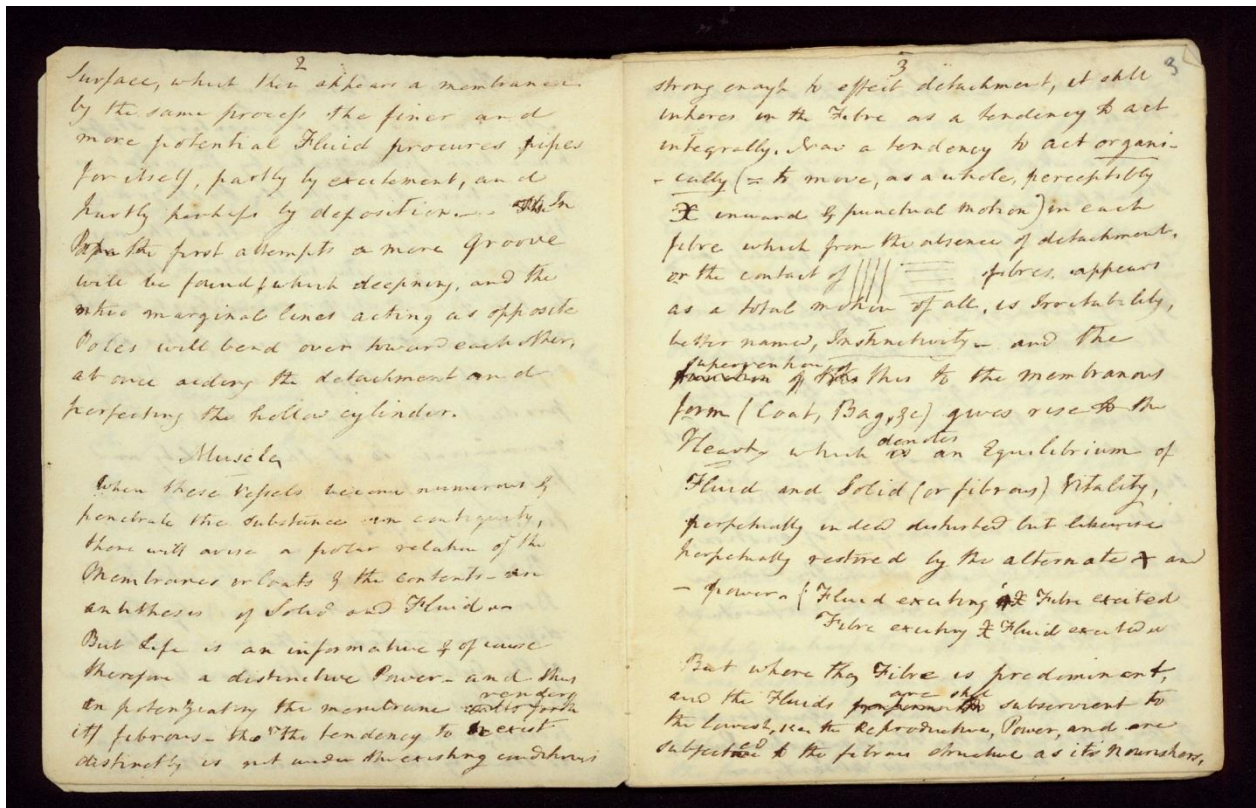 2
Surface, which then appears a membrane
by the same process the finer and
more potential Fluid procures pipes
for itself, partly by excitement, and
partly perhaps by deposition. — In
the first attempts a mere Groove
will be found, which deepning, and the
two marginal lines acting as opposite
Poles will bend over toward each other,
at once aiding the detachment and
perfecting the hollow cylinder.
Muscle
When these Vessels become numerous &
penetrate the substance in contiguity,
there will arise a polar relation of the
Membranes or Coats & the contents — an
antithesis of Solid and Fluid —
But Life is an informative & of course
therefore a distinctive Power — and thus
in potenziating the membrane renders
it fibrous — tho' the tendency to exist
distinctly is not under the existing conditions
3
3
strong enough to effect detachment, it still
inheres in the Fibre as a tendency to act
integrally. Now a tendency to act organi-
-cally (= to move, as a whole, perceptibly
inward & punctual motion) in each
fibre which from the absence of detachment,
or the contact of fibres, appears
as a total motion of all, is Irritability,
better named, Instinctivity — and the
supervention of
this to the membranous
form (Coat, Bag, &c) gives rise to the
Heart, which denotes an Equilibrium of
Fluid and Solid (or fibrous) Vitality,
perpetually indeed disturbed but likewise
perpetually restored by the alternate + and
— power. { Fluid exciting Fibre excited
Fibre exciting Fluid excited
But where the Fibre is predominent,
and the Fluids are still subservient to
the lowest, i.e. the Reproductive, Power, and are
subjected to the fibrous structure as its nourishers,